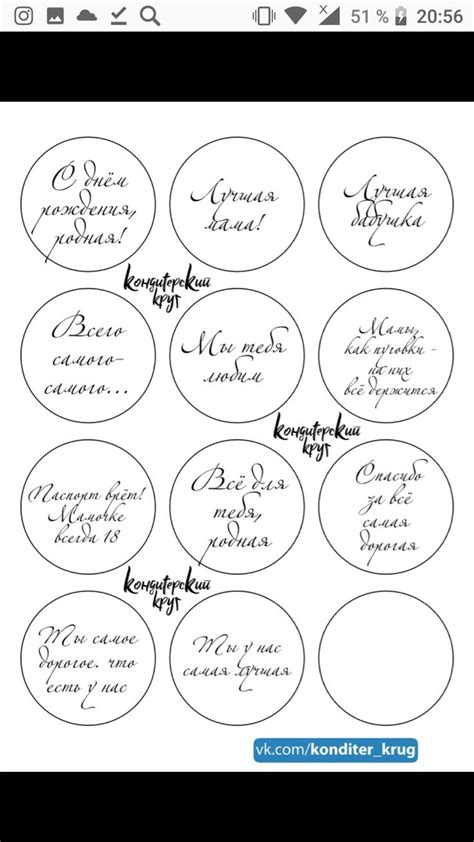 51 % 20:56
С днём
рождения,
родная!
Лучшая
мама!
Лучшая
бабушка
кондитерский
круг
Всего
самого-
самого...
Мы тебя
любим
Мамы,
как пуговки -
на них
всё держится
кондитерский
круг
Паспорт врёт!
Мамочке
всегда 18
Всё для
тебя,
родная
Спасибо
за всё
самая
дорогая
кондитерский
круг
Ты самое
дорогое. что
есть у нас
Ты у нас
самая лучшая
vk.com/konditer_krug